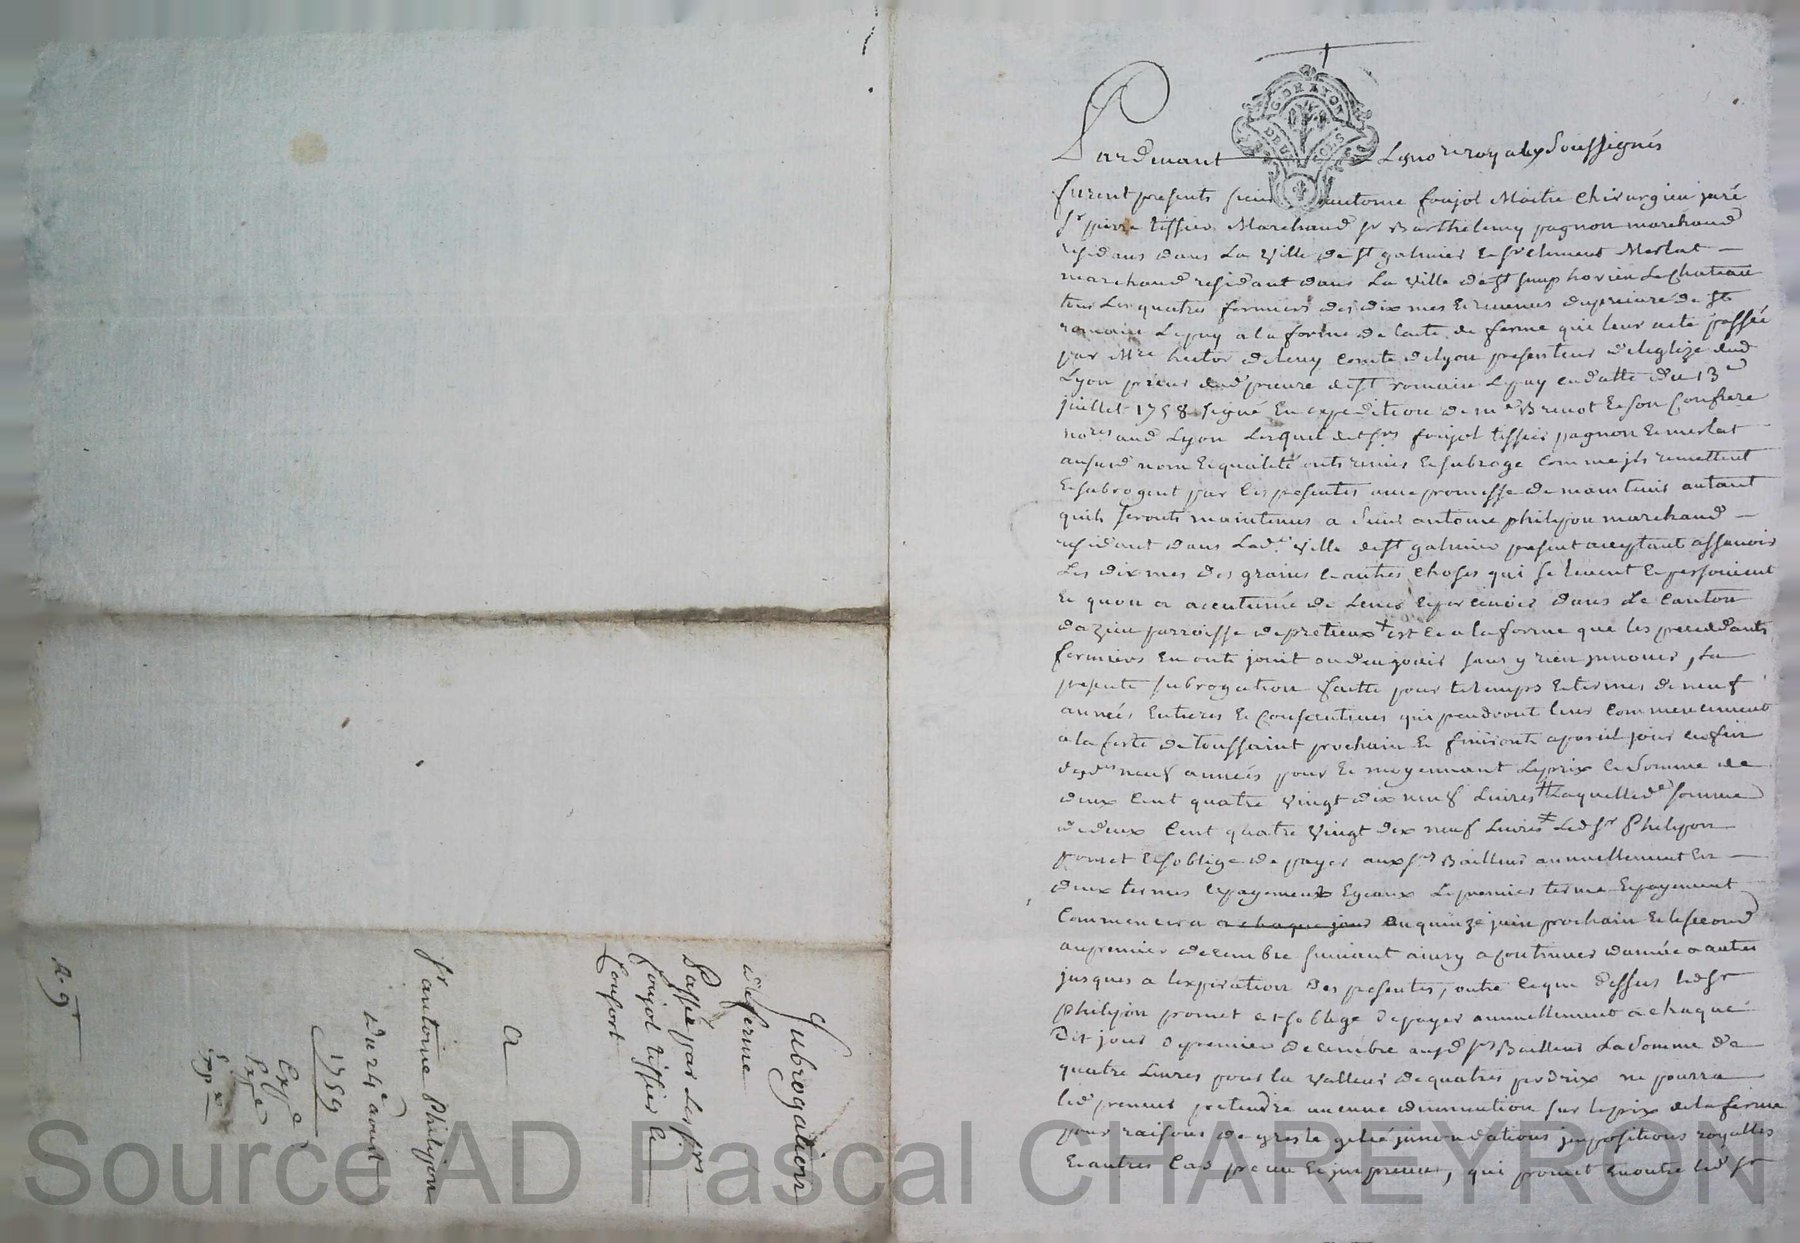 Pardevant Les no.res royaux Soussignés
furent presents sieur antoine foujol Maitre Chirurgien juré
Sr pierre tissier Marchand Sr Barthelemy pagnon marchand
residans dans La Ville de St galmier et Sr Clement Merlat
marchand residant dans La Ville de St Simphorien Le chateau
tous Les quatres fermiers des dixmes et revenus du prieuré de St
romain Le puy a la forme de L'acte de ferme qui leur a eté passée
par Mre hector de levy Comte de Lyon de l'eglize dud
Lyon prieur dud prieuré de St romain Le puy en datte du 13e
juillet 1758 signé En expedition de Me Brenot et son Confrere
nores aud Lyon Lesquels dts srs foujol tissier pagnon et merlat
aususd nom et qualité ont remis et subrogé comme jls remettent
et subrogent par les presentes avec promesse de maintenir autant
quils seronts maintenus a sieur antoine philipon marchand
residant dans Lad.e Ville de St galmier present acceptant assavoir
Les dixmes des grains et autres choses qui se levent et persoivent
et quon a accoutumé de Lever et percevoir dans Le Canton
dazieu parroisse de pretieux + est et a la forme que les precedants
fermiers En onts jouit ou deu jouir sans y rien jnnover, La
presente subrogation faitte pour le temps et termes de neuf
années Entieres et Consecutives qui prendront leur commencement
a la feste de toussaint prochain et finironts a pareil jour en fin
desds neuf années pour et moyennant Le prix et somme de
deux Cent quatre Vingt dix neuf Livres Laquelle de somme
de deux Cent quatre Vingt dix neuf Livres Led Sr Philipon
promet et s'oblige de payer aux srs Bailleurs annuellement en
deux termes et payements Egeaux Le premier terme et payement
Commencera a chaque jour au quinze juin prochain et le second
au premier decembre suivant ainsy a continuer d'année a autre
jusques a l'expiration des presentes, outre ce que dessus led Sr
Philipon promet et s'oblige de payer annuellement a chaque
dit jour de premier decembre auxd srs Bailleurs La somme de
quatre Livres pour la valleur de quatres perdrix ne pourra
led preneur pretendre aucune diminution sur le prix de la ferme
pour raisons de gresle gelée jnnondations jmpositions royalles
et autres Cas preveu et jmpreveu, qui promet en outre led Sr
Subrogation
de ferme
Passée par Les srs
foujol tissier et
Consort
a
Sr antoine Philipon
Du 24e aout
1759
Expe
n. 9
Source AD Pascal CHAREYRON